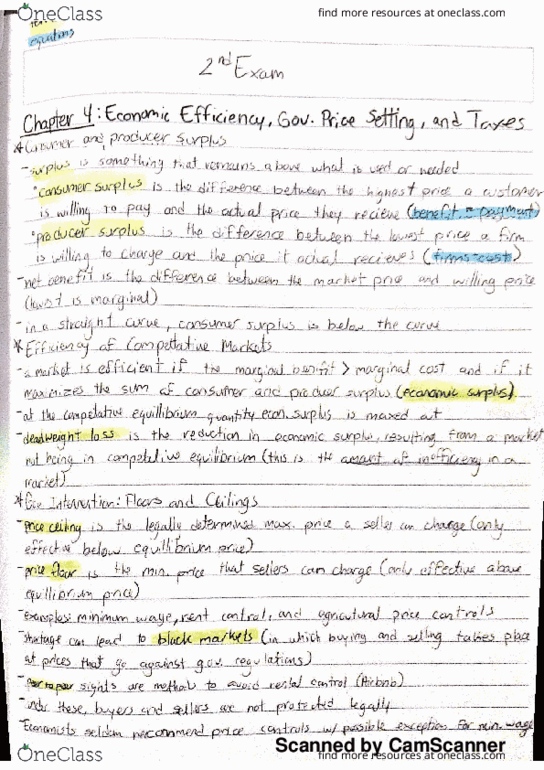 OneClass
find more resources at oneclass.com
equations
2nd Exam
Chapter 4: Economic Efficiency, Gov. Price Setting, and Taxes
* Consumer and producer surplus
-surplus is something that remains above what is used or needed
"consumer surplus is the difference between the highest price a customer
is willing to pay and the actual price they recieve (benefit = payment)
"producer surplus is the difference between the lowest price a firm
is willing to charge and the price it actual recieves (firms-cost)
-net benefit is the difference between the market price and willing price
(lowest is marginal)
-in a straight curve, consumer surplus is below the curve
* Efficiency of Competative Markets
-a market is efficient if the marginal benefit > marginal cost and if it
maximizes the sum of consumer and producer surplus (economic surplus)
-at the competative equilibrium quantity econ. surplus is maxed out
-deadweight loss is the reduction in economic surplus resulting from a market
not being in competitive equilibrium (this is the amount of inefficiency in a
market)
* Intervention: Floors and Ceilings
-price ceiling is the legally determined max. price a seller can charge (only
effective below equilibrium price)
-price floor is the min. price that sellers can charge (only effective above
equilibrium price)
-examples: minimum wage, rent control, and agricultural price controls
-shortage can lead to black markets (in which buying and selling takes place
at prices that go against gov. regulations)
-peer to peer sights are methods to avoid rental control (Airbnb)
-under these, buyers and sellers are not protected legally
-Economists seldom recommend price controls w/ possible exception for min. wage
Scanned by CamScanner
OneClass
find more resources at oneclass.com